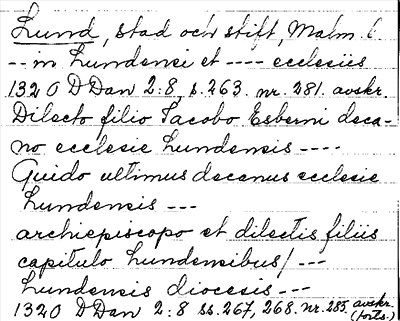 Lund, stad och stift, Malm. l
-- in Lundensi et ---- ecclesiis
1320 DDan 2:8, s. 263. nr. 281. avskr.
Dilecto filio Jacobo Esberni deca-
no ecclesie Lundensis ----
Guido ultimus decanus ecclesie
Lundensis ---
archiepiscopo et dilectis filiis
capitulo Lundensibus/ ---
Lundensis diocesis ---
1320 DDan 2:8 ss. 267, 268. nr. 285. avskr.
(forts.)